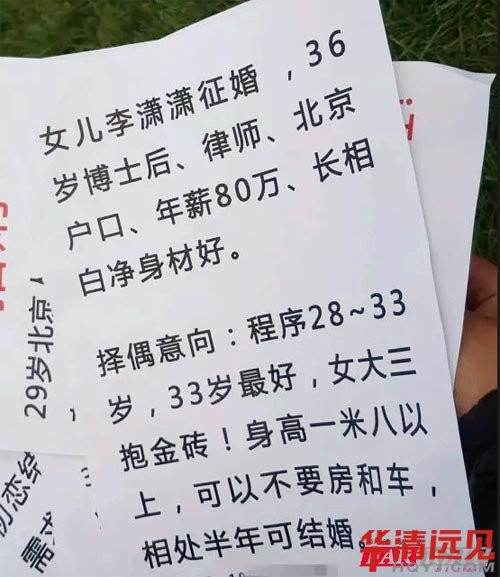 女儿李潇潇征婚，36
岁博士后、律师、北京
户口、年薪80万、长相
白净身材好。
择偶意向：程序28~33
岁，33岁最好，女大三
抱金砖！身高一米八以
上，可以不要房和车，
相处半年可结婚。
29岁北京
初恋结
需求
华清远见